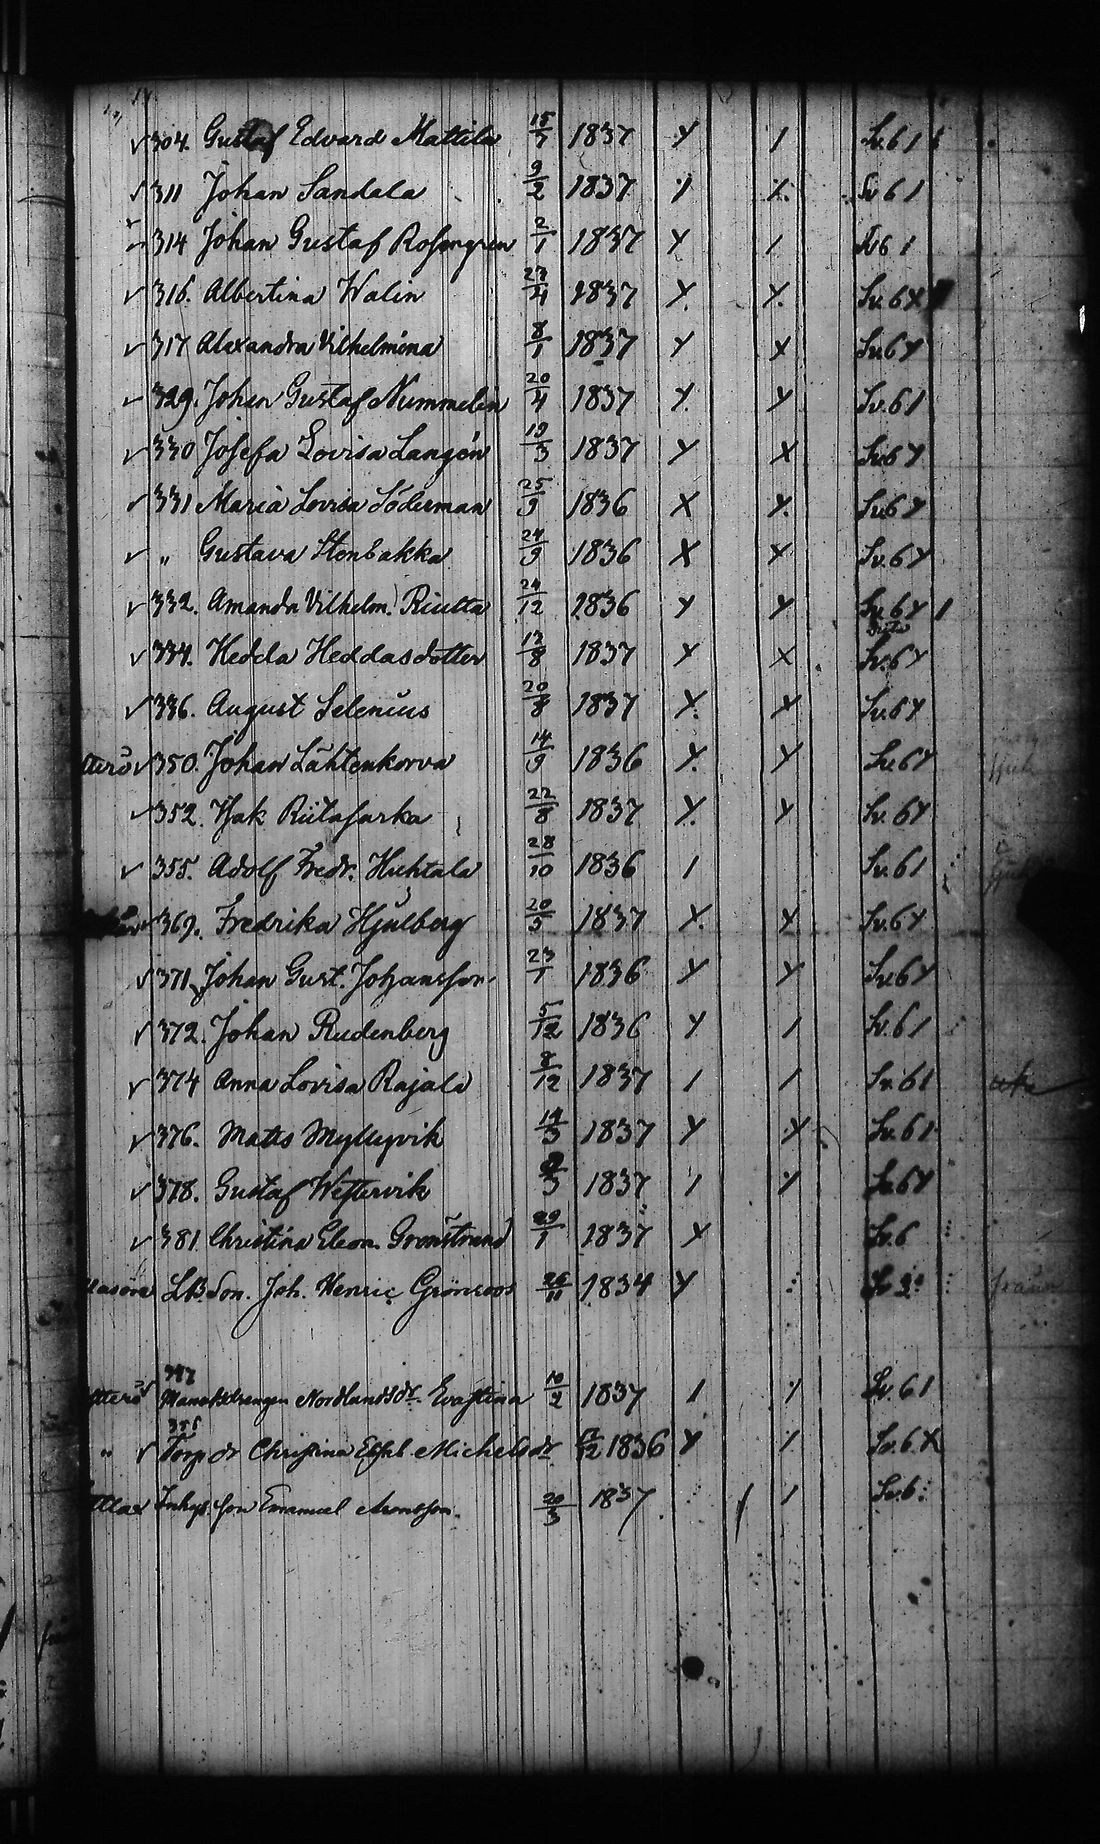 √ 304. Gustaf Edvard Mattila 15/7 1837 Y 1 Sv. 6 1
√ 311 Johan Sandala 9/2 1837 1 X Sv 6 1
314 Johan Gustaf Rosengren 2/1 1837 Y 1 Sv 6 1
√ 316. Albertina Walin 27/4 1837 Y. Y. Sv. 6 X
√ 317 Alexandra Vilhelmina 8/1 1837 Y X Sv. 6 Y
√ 329. Johan Gustaf Nummelin 20/4 1837 Y. Y Sv. 6 1
√ 330 Josefa Lovisa Langén 19/3 1837 Y X Sv. 6 Y
√ 331 Maria Lovisa Söderman 25/9 1836 X Y. Sv. 6 Y
√ „ Gustava Stenbakka 24/9 1836 X Y Sv. 6 Y
√ 332. Amanda Vilhelm. Riutta 24/12 1836 Y Y Sv. 6 Y 1
√ 334. Hedda Heddasdotter 13/8 1837 Y X Sv. 6 Y
√ 336. August Selenius 20/8 1837 X. Y Sv. 6 Y
√ 350. Johan Lähtenkorva 14/9 1836 Y. Y Sv. 6 Y
√ 352. Isak Riitaharka 22/8 1837 Y. Y Sv. 6 Y
√ 355. Adolf Fredr. Huhtala 28/10 1836 1 Sv. 6 1
√ 369. Fredrika Hjulberg 20/5 1837 X. Y Sv. 6 Y
√ 371. Johan Gust. Johansson 23/1 1836 Y Y Sv. 6 Y
√ 372. Johan Rudenberg 5/12 1836 Y 1 Sv. 6 1
√ 374 Anna Lovisa Rajala 8/12 1837 1 1 Sv. 6 1
√ 376. Matts Myllyvik 14/3 1837 Y Y Sv. 6 1
√ 378. Gustaf Westervik /3 1837 1 Y Sv. 6 Y
√ 381 Christina Eleon. Grönstrand 29/1 1837 X Sv. 6
Son. Joh. Henric Grönroos 26/11 1834 Y Sv 2
387
Nordlandsdr. Evastina 10/2 1837 1 Y Sv. 6 1
355
„ √ Torp. dr Christina Michelsdr /12 1836 Y 1 Sv. 6 X
Inhys. son Emanuel Aronsson. 20/3 1837 1 Sv. 6